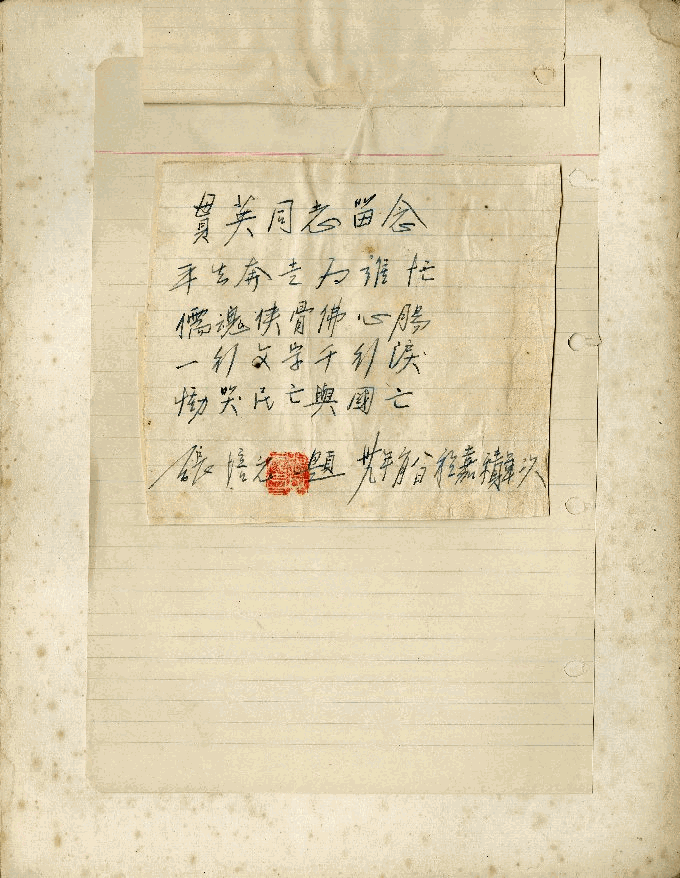 貫英同志留念
平生奔走為誰忙
儒魂俠骨佛心腸
一行文字千行淚
慟哭民亡與國亡
張培元題 廿年月 日於嘉積軍次